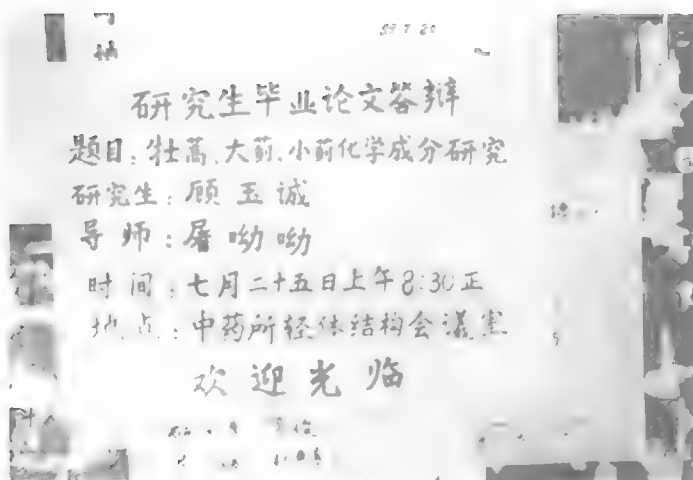 89 7 20
研究生毕业论文答辩
题目：牡蒿、大蓟、小蓟化学成分研究
研究生：顾玉诚
导师：屠呦呦
时间：七月二十五日上午8:30正
地点：中药所轻体结构会议室
欢迎光临